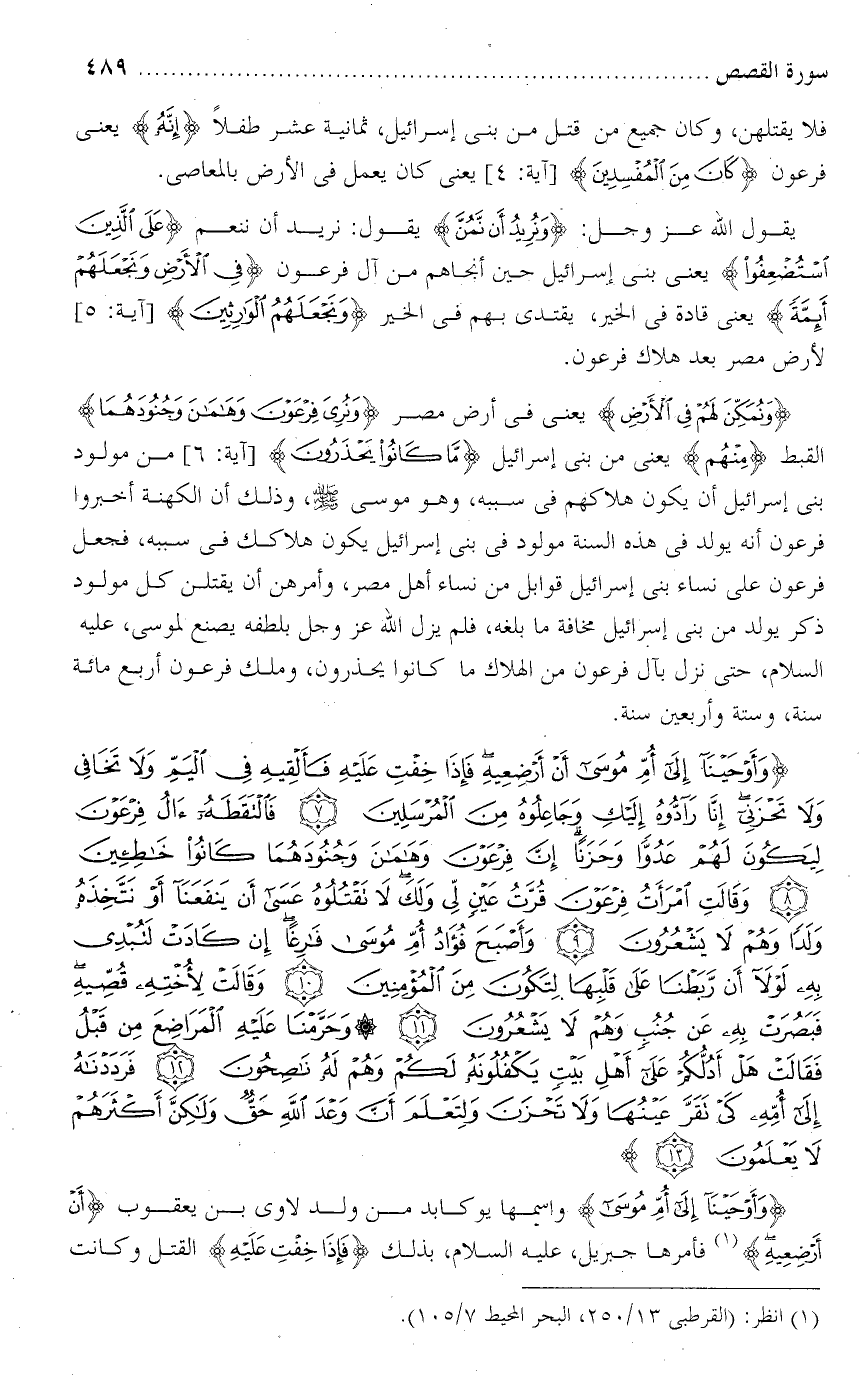 سورة القصص ................................................................ ٤٨٩
فلا يقتلهن، وكان جميع من قتل من بنى إسرائيل، ثمانية عشر طفلاً ﴿إِنَّهُ﴾ يعنى
فرعون ﴿كَانَ مِنَ ٱلْمُفْسِدِينَ﴾ [آية: ٤] يعنى كان يعمل فى الأرض بالمعاصى.
يقول الله عز وجل: ﴿وَنُرِيدُ أَن نَّمُنَّ﴾ يقول: نريد أن ننعم ﴿عَلَى ٱلَّذِينَ
ٱسْتُضْعِفُوا۟﴾ يعنى بنى إسرائيل حين أنجاهم من آل فرعون ﴿فِى ٱلْأَرْضِ وَنَجْعَلَهُمْ
أَئِمَّةً﴾ يعنى قادة فى الخير، يقتدى بهم فى الخير ﴿وَنَجْعَلَهُمُ ٱلْوَٰرِثِينَ﴾ [آية: ٥]
لأرض مصر بعد هلاك فرعون.
﴿وَنُمَكِّنَ لَهُمْ فِى ٱلْأَرْضِ﴾ يعنى فى أرض مصر ﴿وَنُرِىَ فِرْعَوْنَ وَهَٰمَٰنَ وَجُنُودَهُمَا﴾
القبط ﴿مِنْهُم﴾ يعنى من بنى إسرائيل ﴿مَّا كَانُوا۟ يَحْذَرُونَ﴾ [آية: ٦] من مولود
بنى إسرائيل أن يكون هلاكهم فى سببه، وهو موسى ﷺ، وذلك أن الكهنة أخبروا
فرعون أنه يولد فى هذه السنة مولود فى بنى إسرائيل يكون هلاكك فى سببه، فجعل
فرعون على نساء بنى إسرائيل قوابل من نساء أهل مصر، وأمرهن أن يقتلن كل مولود
ذكر يولد من بنى إسرائيل مخافة ما بلغه، فلم يزل الله عز وجل بلطفه يصنع لموسى، عليه
السلام، حتى نزل بآل فرعون من الهلاك ما كانوا يحذرون، وملك فرعون أربع مائة
سنة، وستة وأربعين سنة.
﴿وَأَوْحَيْنَآ إِلَىٰٓ أُمِّ مُوسَىٰٓ أَنْ أَرْضِعِيهِ ۖ فَإِذَا خِفْتِ عَلَيْهِ فَأَلْقِيهِ فِى ٱلْيَمِّ وَلَا تَخَافِى
وَلَا تَحْزَنِىٓ ۖ إِنَّا رَآدُّوهُ إِلَيْكِ وَجَاعِلُوهُ مِنَ ٱلْمُرْسَلِينَ ٧ فَٱلْتَقَطَهُۥٓ ءَالُ فِرْعَوْنَ
لِيَكُونَ لَهُمْ عَدُوًّا وَحَزَنًا ۗ إِنَّ فِرْعَوْنَ وَهَٰمَٰنَ وَجُنُودَهُمَا كَانُوا۟ خَٰطِـِٔينَ
٨ وَقَالَتِ ٱمْرَأَتُ فِرْعَوْنَ قُرَّتُ عَيْنٍ لِّى وَلَكَ ۖ لَا تَقْتُلُوهُ عَسَىٰٓ أَن يَنفَعَنَآ أَوْ نَتَّخِذَهُۥ
وَلَدًا وَهُمْ لَا يَشْعُرُونَ ٩ وَأَصْبَحَ فُؤَادُ أُمِّ مُوسَىٰ فَٰرِغًا ۖ إِن كَادَتْ لَتُبْدِى
بِهِۦ لَوْلَآ أَن رَّبَطْنَا عَلَىٰ قَلْبِهَا لِتَكُونَ مِنَ ٱلْمُؤْمِنِينَ ١٠ وَقَالَتْ لِأُخْتِهِۦ قُصِّيهِ ۖ
فَبَصُرَتْ بِهِۦ عَن جُنُبٍ وَهُمْ لَا يَشْعُرُونَ ١١ ۞ وَحَرَّمْنَا عَلَيْهِ ٱلْمَرَاضِعَ مِن قَبْلُ
فَقَالَتْ هَلْ أَدُلُّكُمْ عَلَىٰٓ أَهْلِ بَيْتٍ يَكْفُلُونَهُۥ لَكُمْ وَهُمْ لَهُۥ نَٰصِحُونَ ١٢ فَرَدَدْنَٰهُ
إِلَىٰٓ أُمِّهِۦ كَىْ تَقَرَّ عَيْنُهَا وَلَا تَحْزَنَ وَلِتَعْلَمَ أَنَّ وَعْدَ ٱللَّهِ حَقٌّ وَلَٰكِنَّ أَكْثَرَهُمْ
لَا يَعْلَمُونَ ١٣﴾
﴿وَأَوْحَيْنَآ إِلَىٰٓ أُمِّ مُوسَىٰٓ﴾ واسمها يوكابد من ولد لاوى بن يعقوب ﴿أَنْ
أَرْضِعِيهِ ۖ﴾ (١) فأمرها جبريل، عليه السلام، بذلك ﴿فَإِذَا خِفْتِ عَلَيْهِ﴾ القتل وكانت
(١) انظر: (القرطبى ٢٥٠/١٣، البحر المحيط ١٠٥/٧).